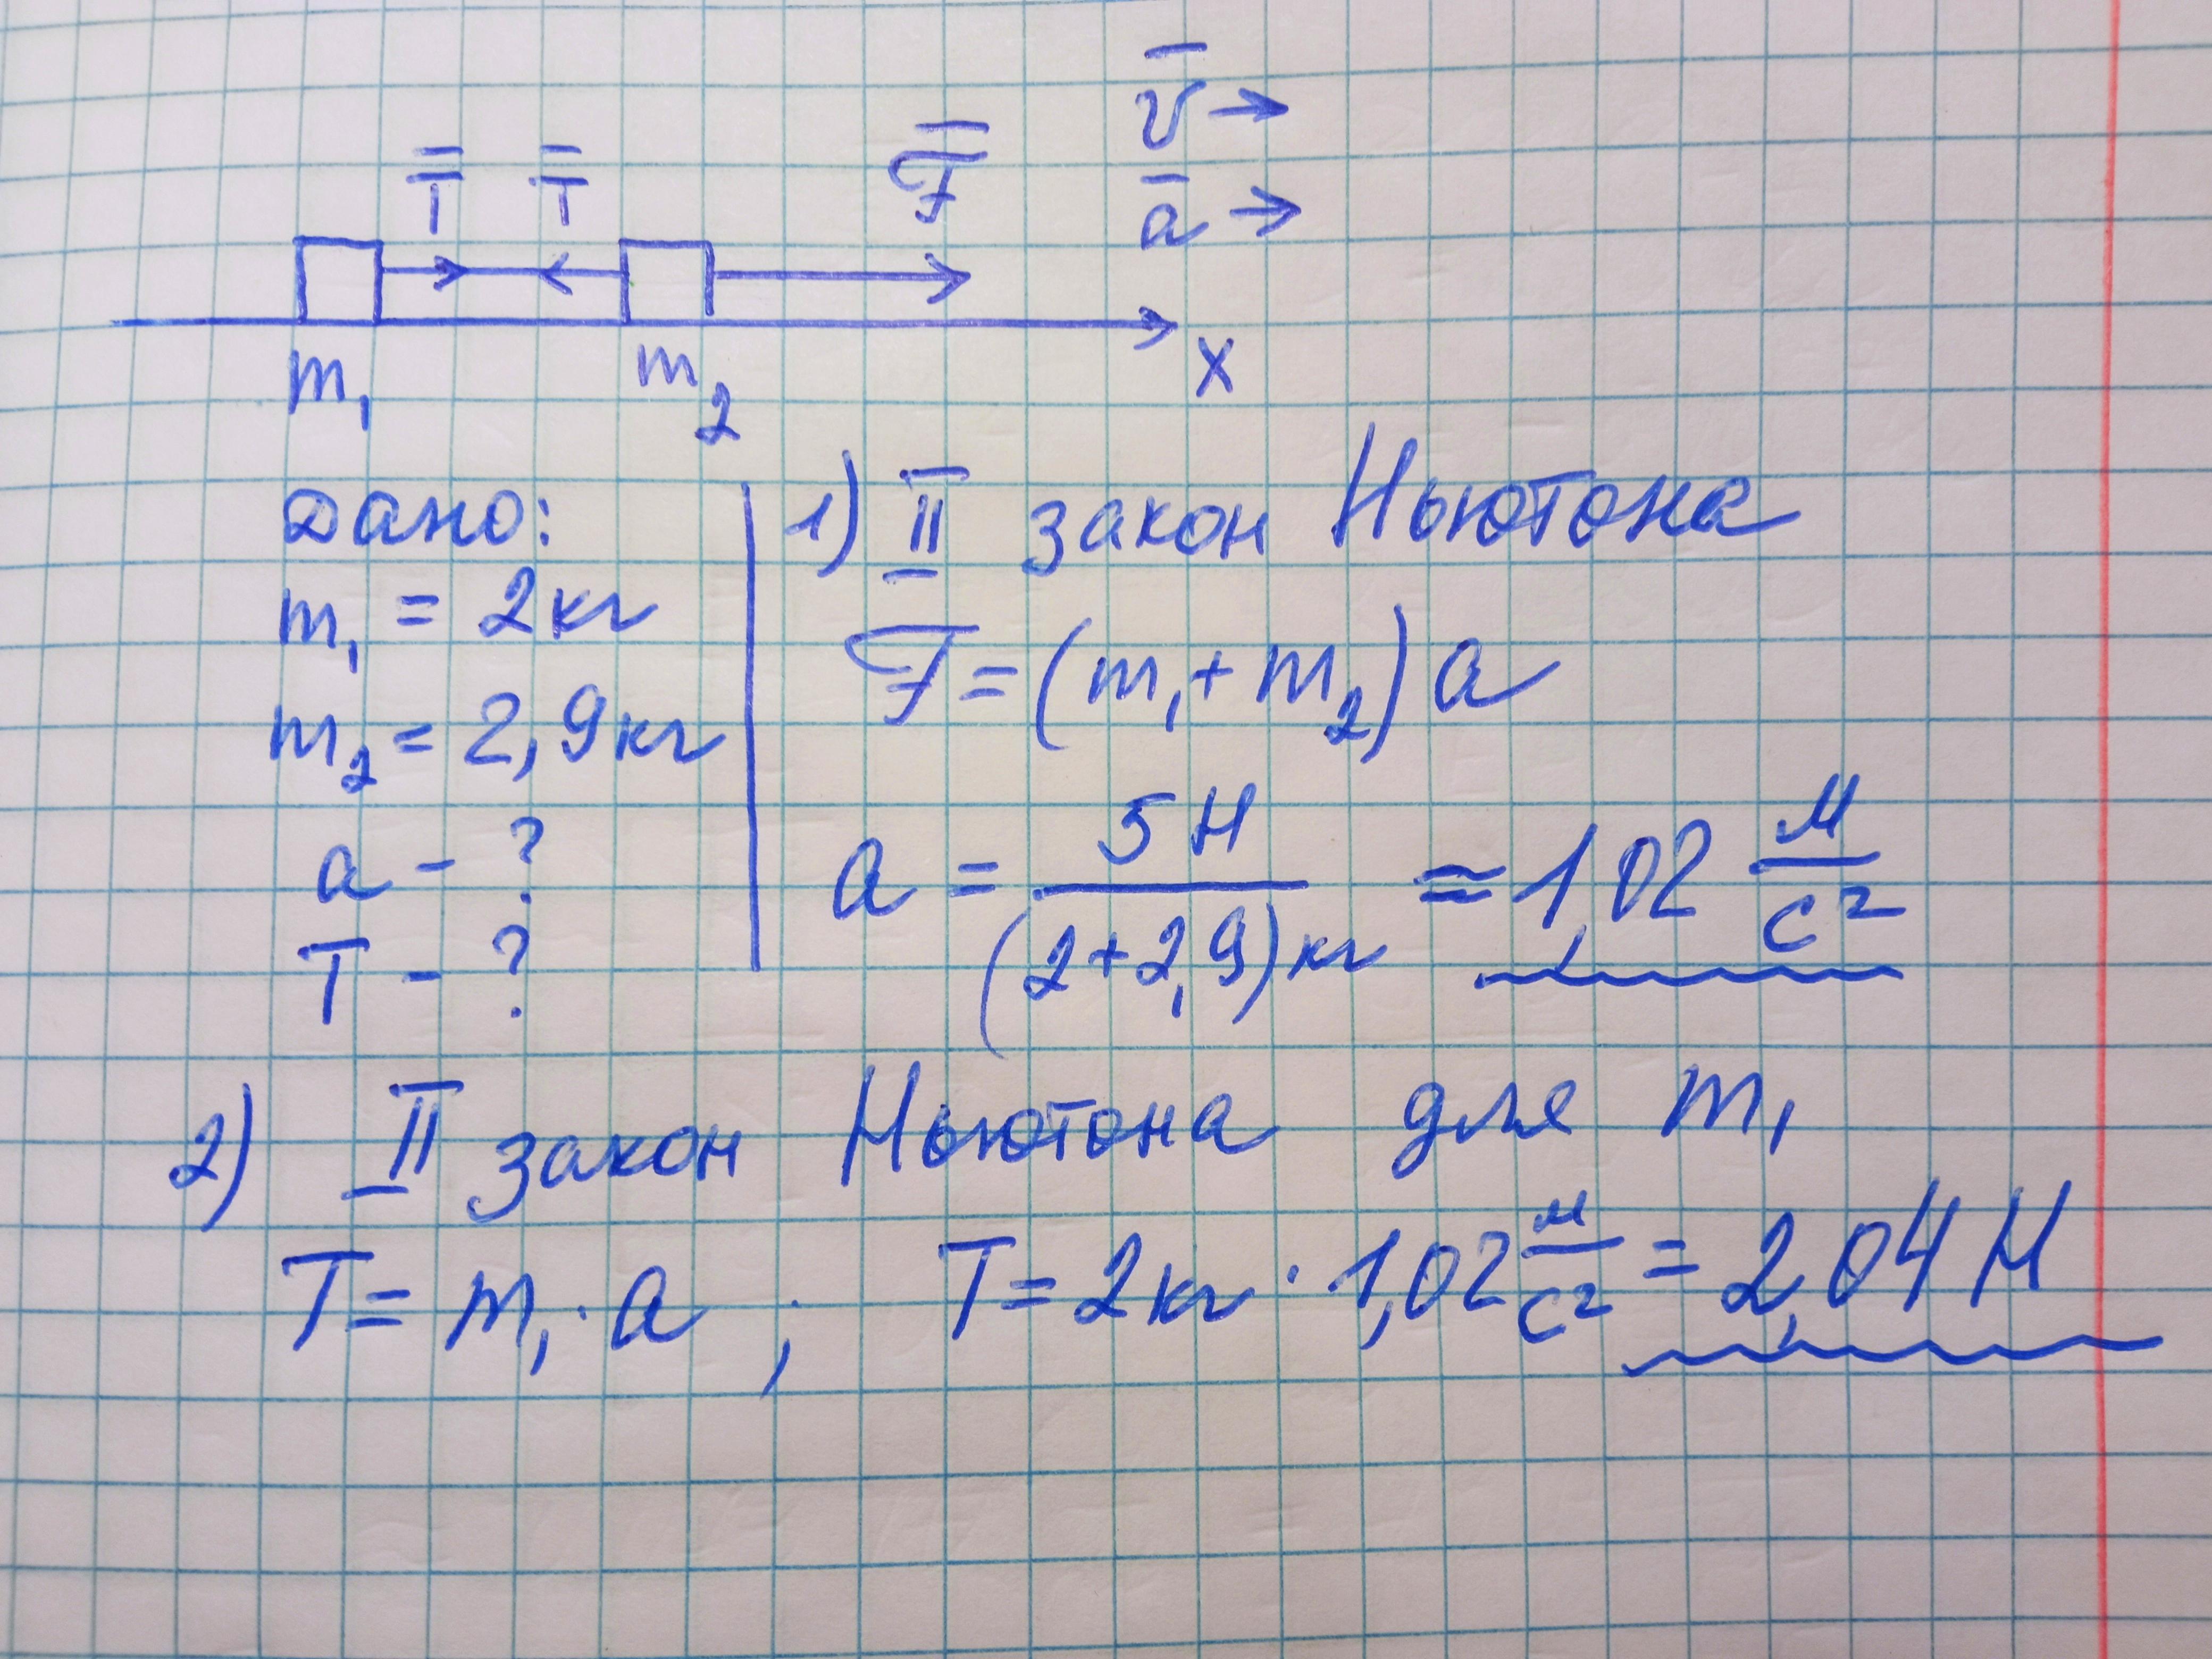 v̄ →
T̄ T̄ F̄ ā →
m₁ m₂ x
Дано:
m₁ = 2кг
m₂ = 2,9кг
a - ?
T - ?
1) II закон Ньютона
F = (m₁ + m₂) a
a = 5Н / (2+2,9)кг ≈ 1,02 м/с²
2) II закон Ньютона для m₁
T = m₁ · a ; T = 2кг · 1,02 м/с² = 2,04 Н